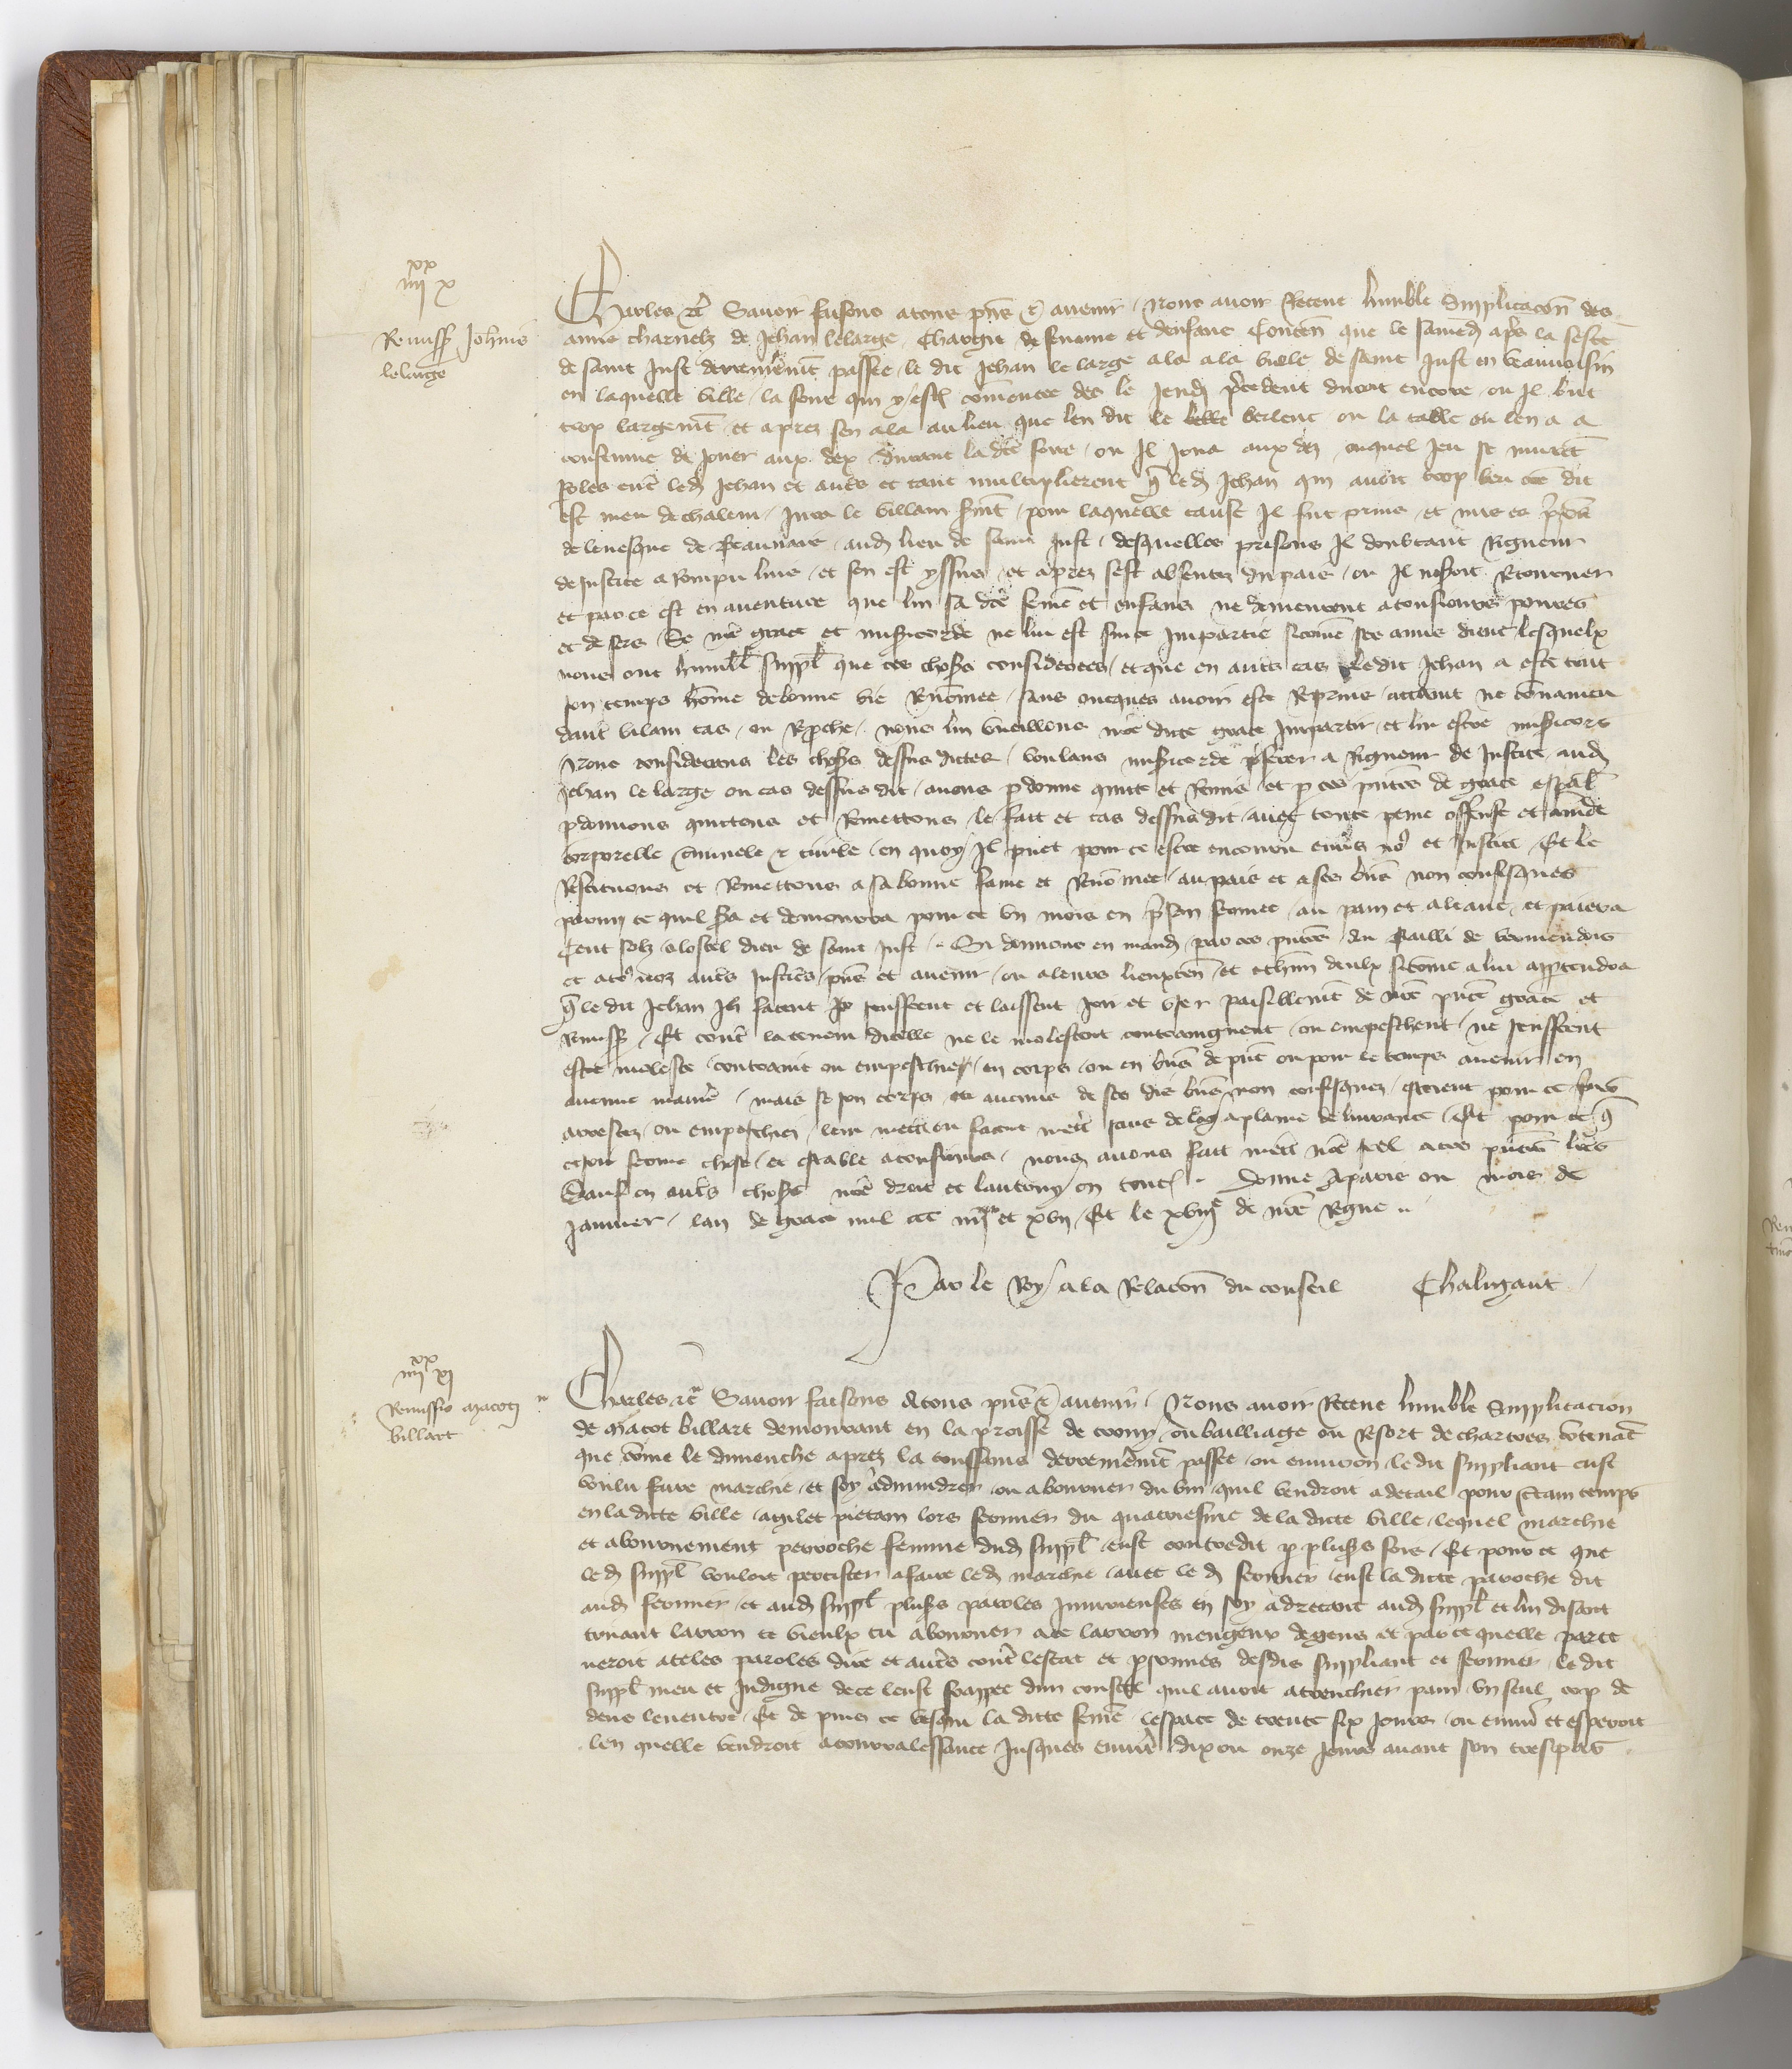 xx
iiii x
Remissio Johannis
lelarge
Charles etc Savoir faisons a tous pns et avenir / Nous avoir Receue humble Supplicacion des
amis charnelz de Jehan lelarge Chargie de femme et denfans Conten que le samedi apres la feste
de saint Just derrenierement passee le dit Jehan le large ala a la ville de saint Just en beauvoisin
en laquelle ville / la foire qui y est commencee des le Jeudi precedent duroit encore / ou Il but
trop largement et aprez sen ala au lieu que len dit le berlenc ou la table ou len a a
coustume de Jouer aux dez durant la dicte foire / ou Il Joua aux dez / ouquel Jeu se murent
foles entre ledit Jehan et autres et tant multiplierent que ledit Jehan qui avoit trop beu comme dit
est meu de chaleur / Jura le villain serment / pour laquelle cause Il fut prins et mis es prisons
de levesque de Beauvais / audit lieu de saint Just / desquelles prisons Il doubtant Rigueur
de Justice a Rompu luis / et sen est yssus / et aprez sest absentez du pais / ou Il noseroit Retourner
et par ce est en aventure que lui sa dicte femme et enfans ne demeurent a tousjours povres
et desers / Se nre grace et misericorde ne lui est sur ce Impartie sicomme ses amis dient / lesquelx
nous ont humblement supplie que ces choses considerees / et que en autres cas ledit Jehan a este tout
son temps homme de bonne vie Renommee / sans oncques avoir este Reprins / attaint ne convaincu
dautre vilain cas / ou Reproche / nous lui vueillons nre dicte grace Impartir / et lui estre misericors
Nous considerans les choses dessus dictes / voulans misericorde preferer a Rigueur de Justice audit
Jehan le large ou cas dessus dit / avons pardonne quitte et Remis / et par ces presentes de grace especial
pardonnons quittons et Remettons / le fait et cas dessusdit / avec toute peine offense et amende
corporelle criminele et civile / en quoy Il puet pour ce estre encouru envers nous et Justice / Et le
Restituons et Remettons a sa bonne fame et Renommee / au pais et a ses biens non confisques
parmy ce quil sera et demourra pour ce un mois en prison fermee / au pain et a leaue / et paiera
Cent solz a lostel dieu de saint Just / Si donnons en mandement par ces presentes / au Bailli de vermendois
et a tous noz autres Justiciers / presens et avenir / ou a leurs lieuxtenans / et a chascun deulx sicomme a lui appartendra
que le dit Jehan Ilz facent seuffrent et laissent Joir et user paisiblement de nre presente grace et
Remission / Et contre la teneur dicelle ne le molestent contraingnent / ou empeschent / ne seuffrent
estre moleste / contraint ou empeschie / en corps / ou en biens de present ou pour le temps avenir en
aucune maniere / mais se son corps ou aucuns de ses diz biens non confisquez / estoient pour ce prins
arrestez / ou empeschiez / leur mettent ou facent mettre sans delay a plaine delivrance / Et pour ce que
ce soit ferme chose / et estable a tousjours / nous avons fait mettre nre seel a ces presentes lettres
Sauf en autres choses nre droit et lautruy en toutes / Donne a paris ou mois de
Janvier / lan de grace mil ccc iiii xx et xvii / Et le xviii e de nre Regne
Par le Roy / a la Relacion du conseil Chaligaut
xx
iiii xi
Remissio Macoti
billart
Charles etc Savoir faisons A tous pns et avenir / Nous avoir Receue humble Supplicacion
de Macot billart demourant en la paroisse de crouy / ou bailliage ou Resort de chartres contenant
que comme le dimenche aprez la toussains derrenierement passee / ou environ / le dit suppliant eust
voulu faire marchie / et soy admindrer / ou abonner du vin quil vendroit a detail pour certain temps
en la dicte ville / a Gilet pietain lors fermier du quatriesme de la dicte ville / lequel marchie
et abonnement perroche femme dudit suppliant / eust contredit par pluseurs fois / Et pour ce que
ledit suppliant vouloit percister a faire ledit marchie / avec le dit fermier / eust la dicte paroche dit
audit fermier / et audit suppliant pluseurs paroles Injurieuses en soy adrecant audit suppliant et lui disant
truant larron te veulx tu abonner a ce larron mengeur de gens et par ce quelle parce
veroit a teles paroles dire et autres contre lestat et personnes desdis suppliant et fermier / le dit
suppliant meu et Indigne de ce leust frappee dun coustel quil avoit a trenchier pain un seul cop de
dens le ventre / Et depuis ce vesqui la ditte femme / lespace de trente six Jours / ou environ et esperoit
len quelle vendroit a convalessance / Jusques environ dix ou onze Jours avant son trespas